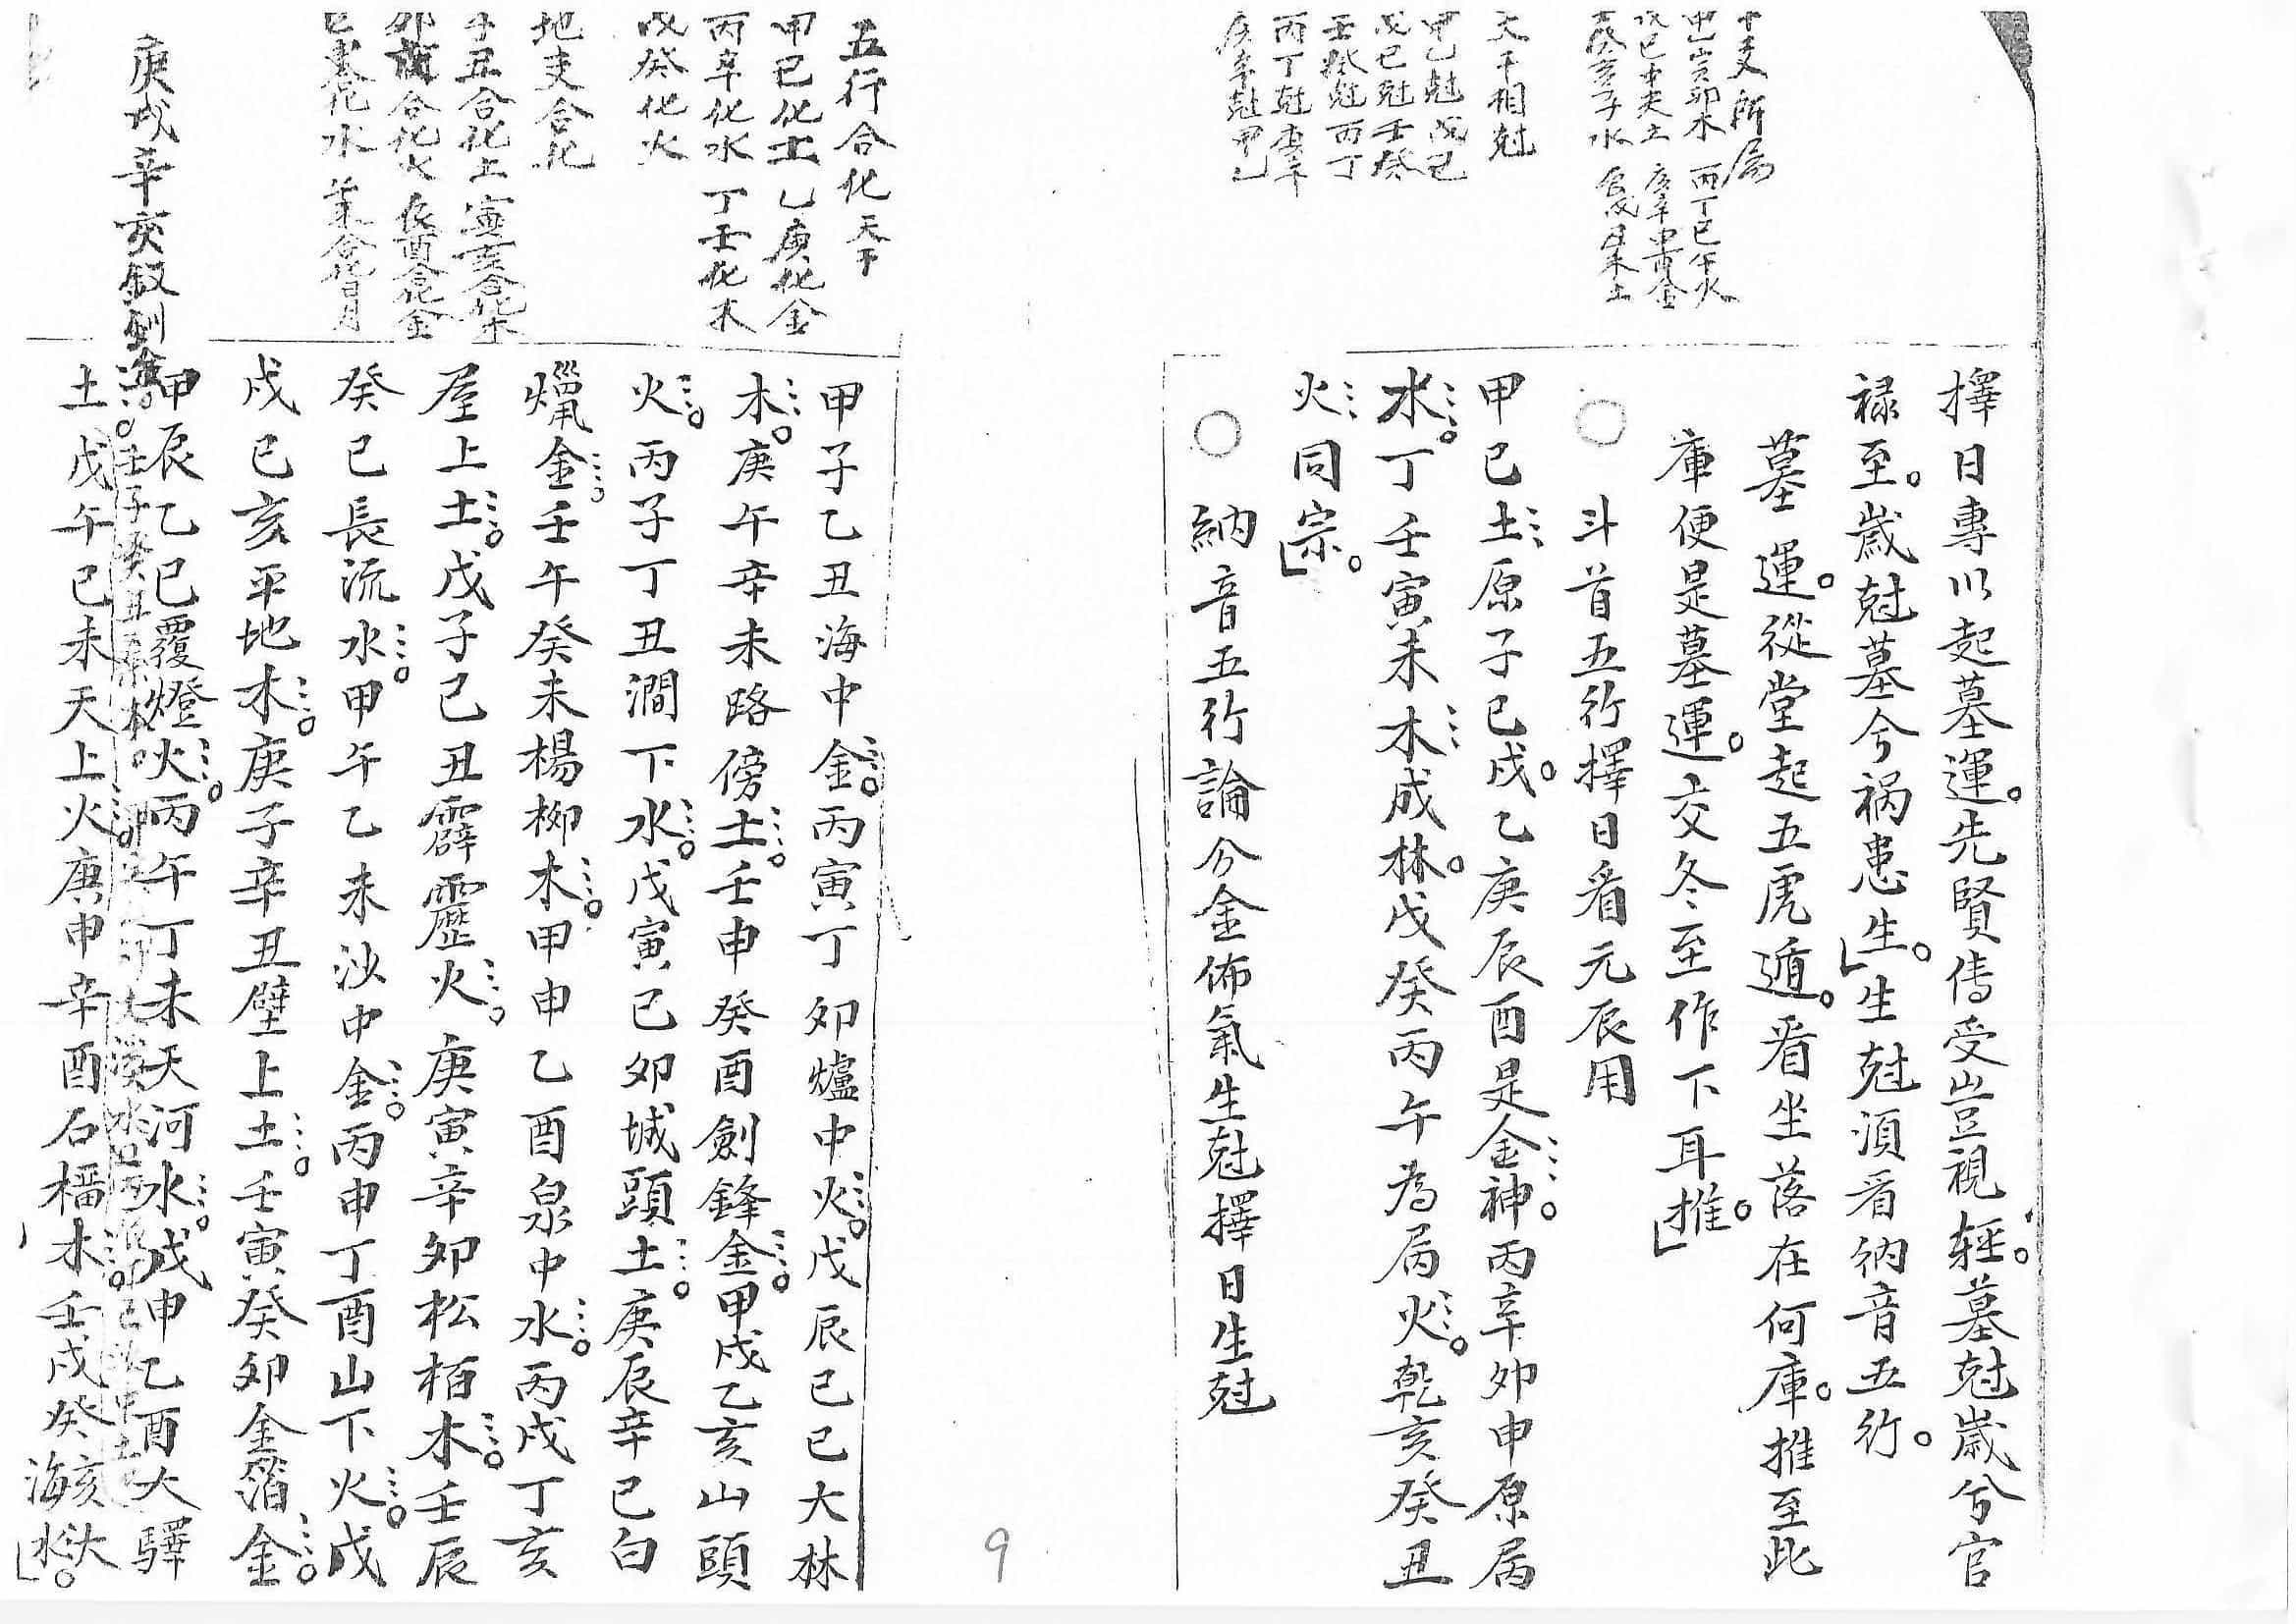 干支所属
甲乙寅卯木 丙丁巳午火
戊己中央土 庚辛申酉金
壬癸亥子水 辰戌丑未土
天干相尅
甲乙尅戊己
戊己尅壬癸
壬癸尅丙丁
丙丁尅庚辛
庚辛尅甲乙
擇日專以起墓運。先賢傳受豈視輕。墓尅歲兮官
禄至。歲尅墓兮禍患生。生尅須看納音五行。
墓運。從堂起五虎遁。看坐落在何庫。推至此
庫便是墓運。交冬至作下耳推。
○ 斗首五行擇日看元辰用
甲己土原子己戌。乙庚辰酉是金神。丙辛卯申原属
水。丁壬寅未木成林。戊癸丙午為屬火。乾亥癸丑
火同宗。
○ 納音五行論分金佈氣生尅擇日生尅
五行合化 天干
甲己化土 乙庚化金
丙辛化水 丁壬化木
戊癸化火
地支合化
子丑合化土 寅亥合化木
卯戌合化火 辰酉合化金
巳申化水 午未合化日月
庚戌辛亥釵釧金
甲子乙丑海中金。丙寅丁卯爐中火。戊辰己巳大林
木。庚午辛未路傍土。壬申癸酉劍鋒金。甲戌乙亥山頭
火。丙子丁丑澗下水。戊寅己卯城頭土。庚辰辛巳白
爉金。壬午癸未楊柳木。甲申乙酉泉中水。丙戌丁亥
屋上土。戊子己丑霹靂火。庚寅辛卯松柏木。壬辰
癸巳長流水。甲午乙未沙中金。丙申丁酉山下火。戊
戌己亥平地木。庚子辛丑壁上土。壬寅癸卯金箔金。
甲辰乙巳覆燈火。丙午丁未天河水。戊申乙酉大驛
土。壬子癸丑桑木
土 戊午己未天上火。庚申辛酉石榴木。壬戌癸亥大海水。